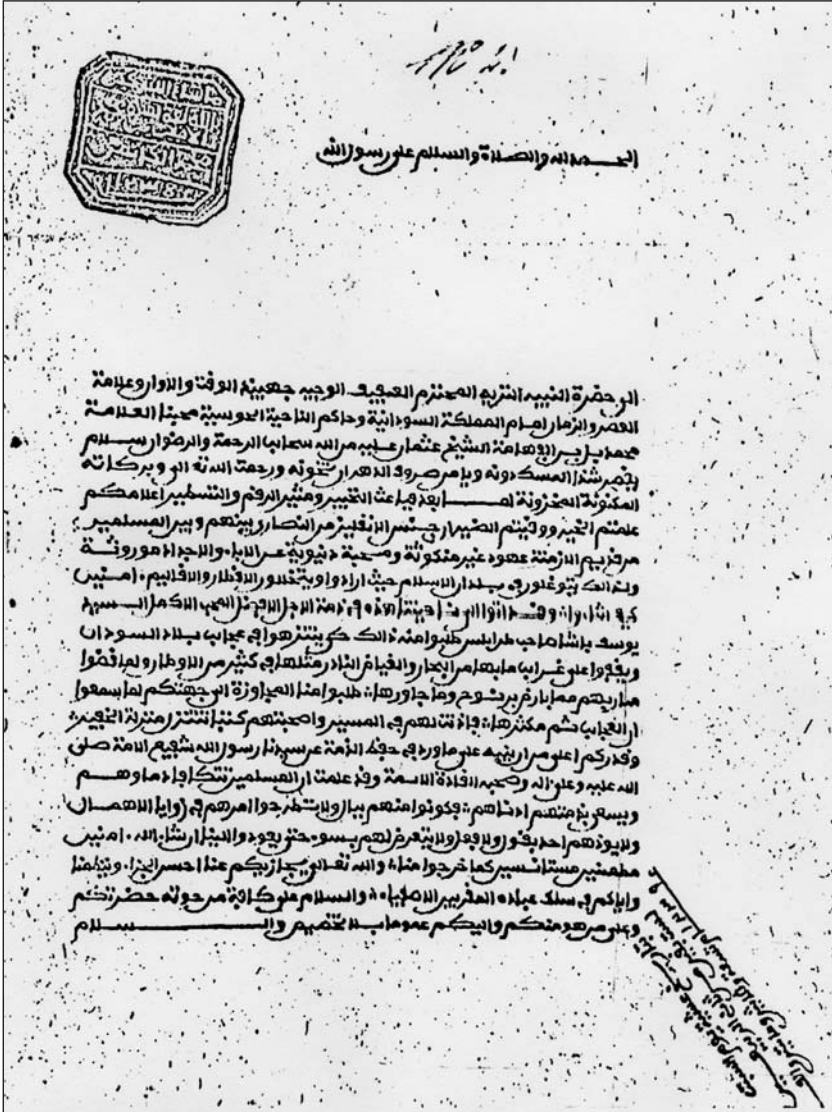 الحمد لله والصلاة والسلام على رسول الله
الى حضرة النبيه النزيه المحترم العفيف الوجيه جهبيذ الوقت والاوان وعلامة
العصر والزمان امام المملكة السودانية وحاكم الناحية الحوسية محبنا العلامة
محمد بل بن ابو هامة الشيخ عثمان عليه من الله سحاب الرحمة والرضوان سلام
يقصر شذا المسك دونه ويامن صروف الدهر ان تخونه ورحمت الله تعالى وبركاته
المكنونة المخزونة اما بعد فباعث التحبير ومثير الرقم والتسطير اعلامكم
علمتم الخير ووقيتم الضير ان جنس الانقليز من النصارى بينهم وبين المسلمين
من قديم الازمنة عهود غير منكوثة وصحبة دنيوية عن الاباء والاجداد موروثة
ولذالك يتوغلون في بلدان الاسلام حيث ارادوا ويتخللون الاقطار والاقاليم امنين
كيف شاءوا وقد اتوا الى ناحيتنا هذه في ذمة الاجل الافضل المحب الاكمل السيد
يوسف باشا صاحب طرابلس طلبوا منه ذالك كي يتنزهوا في عجايب بلاد السودان
ويقفوا على غرايب ما بها من البحار والغياض النادر مثلها في كثير من الاوطار ولما قضوا
مئاربهم مما بارض برنوح وما جاورها طلبوا منا المجاوزة الى جهتكم لما سمعوا
ان العجايب ثم مكثرها فاذنت لهم في المسير واصحبتهم كتبا تتنزل منزلة الخفير
وقدركم اعلى من ان ينبه على ما ورد في حفظ الذمة عن سيدنا رسول الله شفيع الامة صلى
الله عليه وعلى اله وصحبه القادة الايمة وقد علمت ان المسلمين تتكافا دماوهم
ويسعى بذمتهم ادناهم فكونوا منهم ببال ولا تطرحوا امرهم في زوايا الاهمال
ولا يوذهم احد بقول ولا فعل ولا يتعرض لهم بسوء حتى يعودوا الينا ان شاء الله امنين
مطمئنين مستانسين كما خرجوا منا والله تعالى يجازيكم عنا احسن الجزاء وينظمنا
واياكم في سلك عباده المقربين الاصفياء والسلام على كافة من حوته حضرتكم
وعلى من هو منكم واليكم عموما بلا تخصيص والسلام